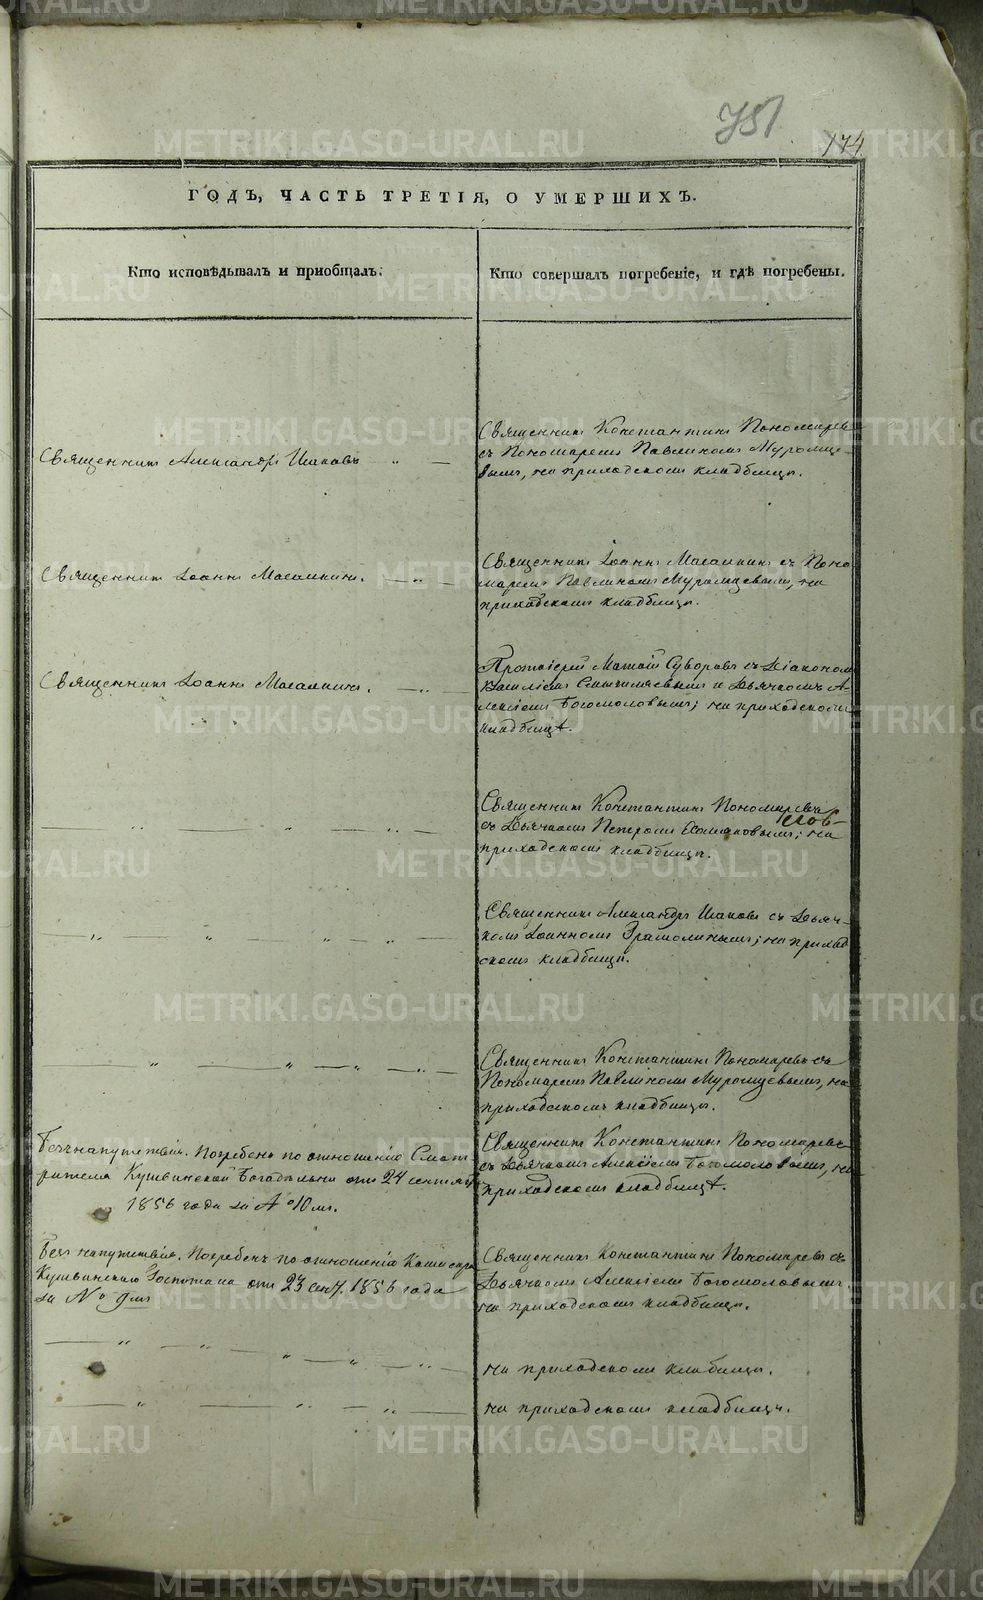 751
174
ГОДЪ, ЧАСТЬ ТРЕТІЯ, О УМЕРШИХЪ.
Кто исповѣдывалъ и пріобщалъ.
Кто совершалъ погребеніе, и гдѣ погребены.
Священникъ Александръ Шаховъ
Священникъ Константинъ Пономаревъ
съ Пономаремъ Павлиномъ Муромце-
вымъ, на приходскомъ кладбищѣ.
Священникъ Іоаннъ
Священникъ Іоаннъ съ Поно-
маремъ Павлиномъ Муромцевымъ, на
приходскомъ кладбищѣ.
Священникъ Іоаннъ
Протоіерей Матѳій Суворовъ съ Діакономъ
Василіемъ и Дьячкомъ А-
лексѣемъ Богомоловымъ; на приходскомъ
кладбищѣ.
Священникъ Константинъ Пономаревъ
съ Дьячкомъ Петромъ на
приходскомъ кладбищѣ.
Священникъ Александръ Шаховъ съ Дьяч-
комъ Іоанномъ на приход
скомъ кладбищѣ.
Священникъ Константинъ Пономаревъ съ
Пономаремъ Павлиномъ Муромцевымъ, на
приходскомъ кладбищѣ.
Безъ напутствія. Погребенъ по отношенію Смот-
рителя Кушвинской Богадѣльни отъ 24 сентября
1856 года за № 10мъ.
Священникъ Константинъ Пономаревъ
съ Дьячкомъ Алексѣемъ Богомоловымъ, на
приходскомъ кладбищѣ.
Безъ напутствія. Погребенъ по отношенію Комисара
Кушвинскаго Госпиталя отъ 23 сент. 1856 года
за № 9мъ
Священникъ Константинъ Пономаревъ съ
Дьячкомъ Алексѣемъ Богомоловымъ
на приходскомъ кладбищѣ.
на приходскомъ кладбищѣ.
на приходскомъ кладбищѣ.
METRIKI.GASO-URAL.RU